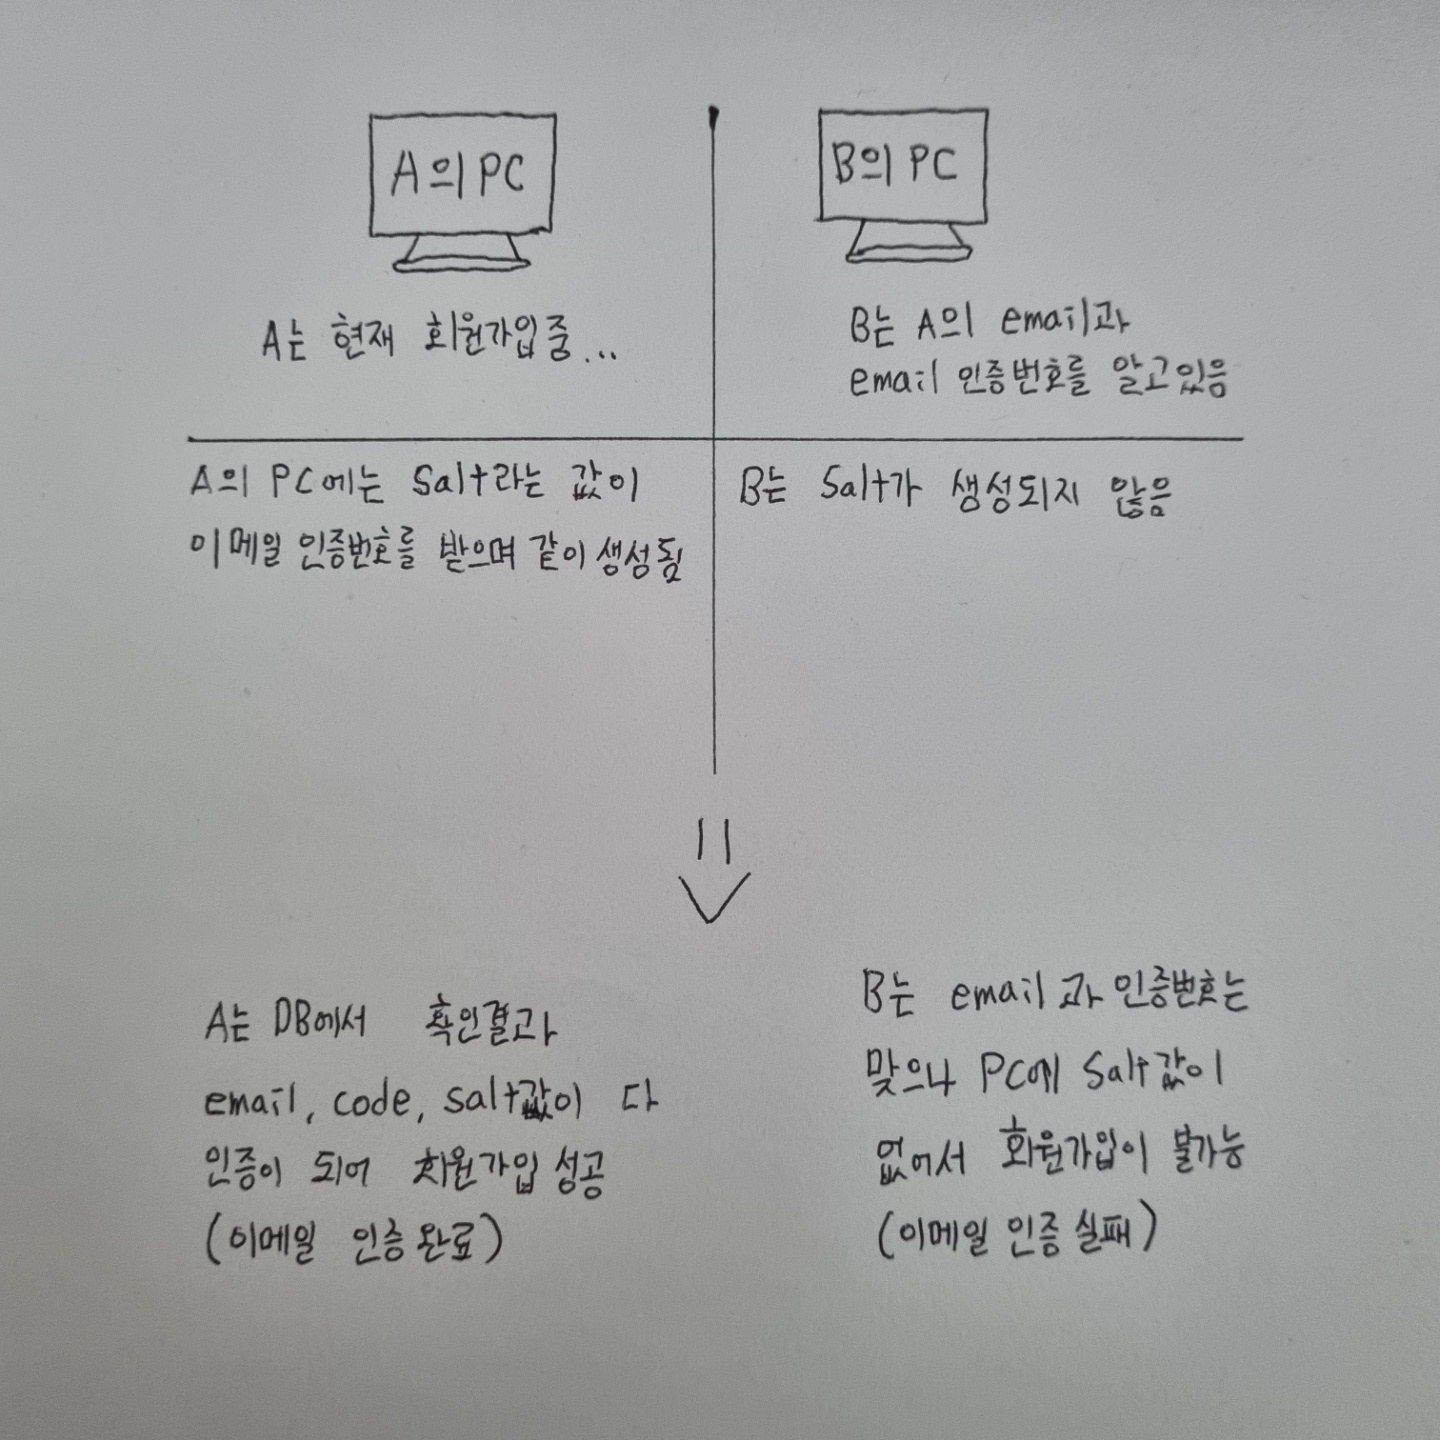 A의 PC
A는 현재 회원가입중...
B의 PC
B는 A의 email과
email 인증번호를 알고있음
A의 PC에는 Salt라는 값이
이메일 인증번호를 받으며 같이 생성됨
B는 Salt가 생성되지 않음
A는 DB에서 확인결과
email, code, salt값이 다
인증이 되어 회원가입 성공
(이메일 인증 완료)
B는 email과 인증번호는
맞으나 PC에 Salt값이
없어서 회원가입이 불가능
(이메일 인증 실패)